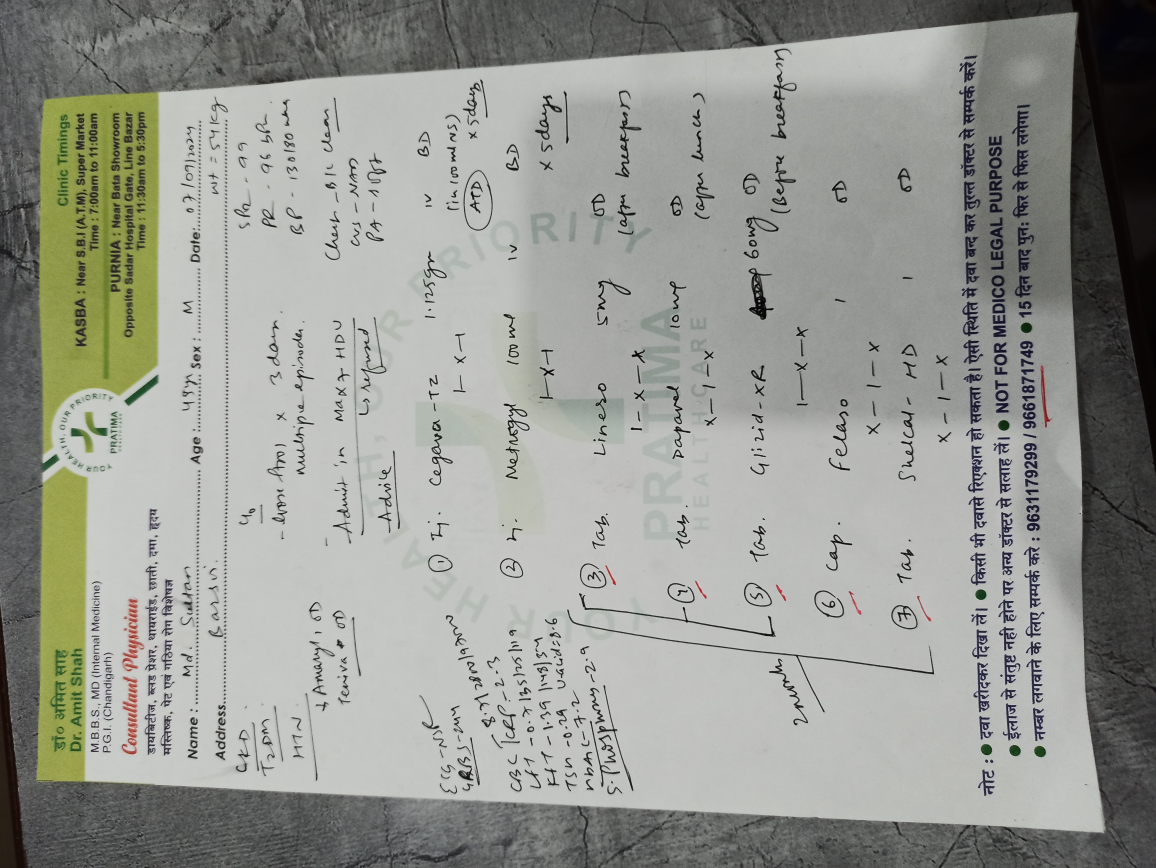 डॉ० अमित साह
Dr. Amit Shah
M.B.B.S., MD (Internal Medicine)
P.G.I. (Chandigarh)
Consultant Physician
डायबिटीज, ब्लड प्रेशर, थायराईड, छाती, दमा, हृदय
मस्तिष्क, पेट एवं गठिया रोग विशेषज्ञ
YOUR HEALTH, OUR PRIORITY
PRATIMA
Clinic Timings
KASBA : Near S.B.I (A.T.M), Super Market
Time : 7:00am to 11:00am
PURNIA : Near Bata Showroom
Opposite Sadar Hospital Gate, Line Bazar
Time : 11:30am to 5:30pm
Name : Md. Sultan Age : 49y Sex : M Date: 07/09/2024
Address Barsoi wt = 54 kg
CKD
T2DM
HTN
→ Amaryl 1 OD
Teniva OD
c/o
- loose stool x 3 days
multiple episodes
- Admit in Max 7 HDU
↳ refused
- Advice
SPO2 - 99
PR - 96 bpm
BP - 130/80
Chest - B/L clear
CVS - NAD
ECG - NSR
GRBS - 244
CBC
CRP - 2.3
LFT - 0.7/35/25/119
KFT - 1.39/148/54
TSH - 0.29 U.acid = 8.6
HbA1C - 7.2
S. Phosphorus - 2.9
① Inj. Cegava - TZ 1.125gm IV BD
1-x-1 (in 100ml NS)
ATD x 5 days
② Inj. Metrogyl 100ml IV BD
1-x-1 x 5 days
③ Tab. Linero 5mg OD
1-x-x (after breakfast)
④ Tab. Dapavel 10mg OD
x-1-x (after lunch)
⑤ Tab. Glizid-XR 60mg OD
1-x-x (Before breakfast)
⑥ Cap. Felaso 1 OD
x-1-x
⑦ Tab. Shelcal-HD 1 OD
x-1-x
YOUR HEALTH, OUR PRIORITY
PRATIMA
HEALTHCARE
नोट : ● दवा खरीदकर दिखा लें। ● किसी भी दवासे रिएक्शन हो सकता है। ऐसी स्थिति में दवा बन्द कर तुरन्त डॉक्टर से सम्पर्क करें।
● ईलाज से संतुष्ट नही होने पर अन्य डॉक्टर से सलाह लें। ● NOT FOR MEDICO LEGAL PURPOSE
● नम्बर लगवाने के लिए सम्पर्क करे : 9631179299 / 9661871749 ● 15 दिन बाद पुन: फिर से फिस लगेगा।